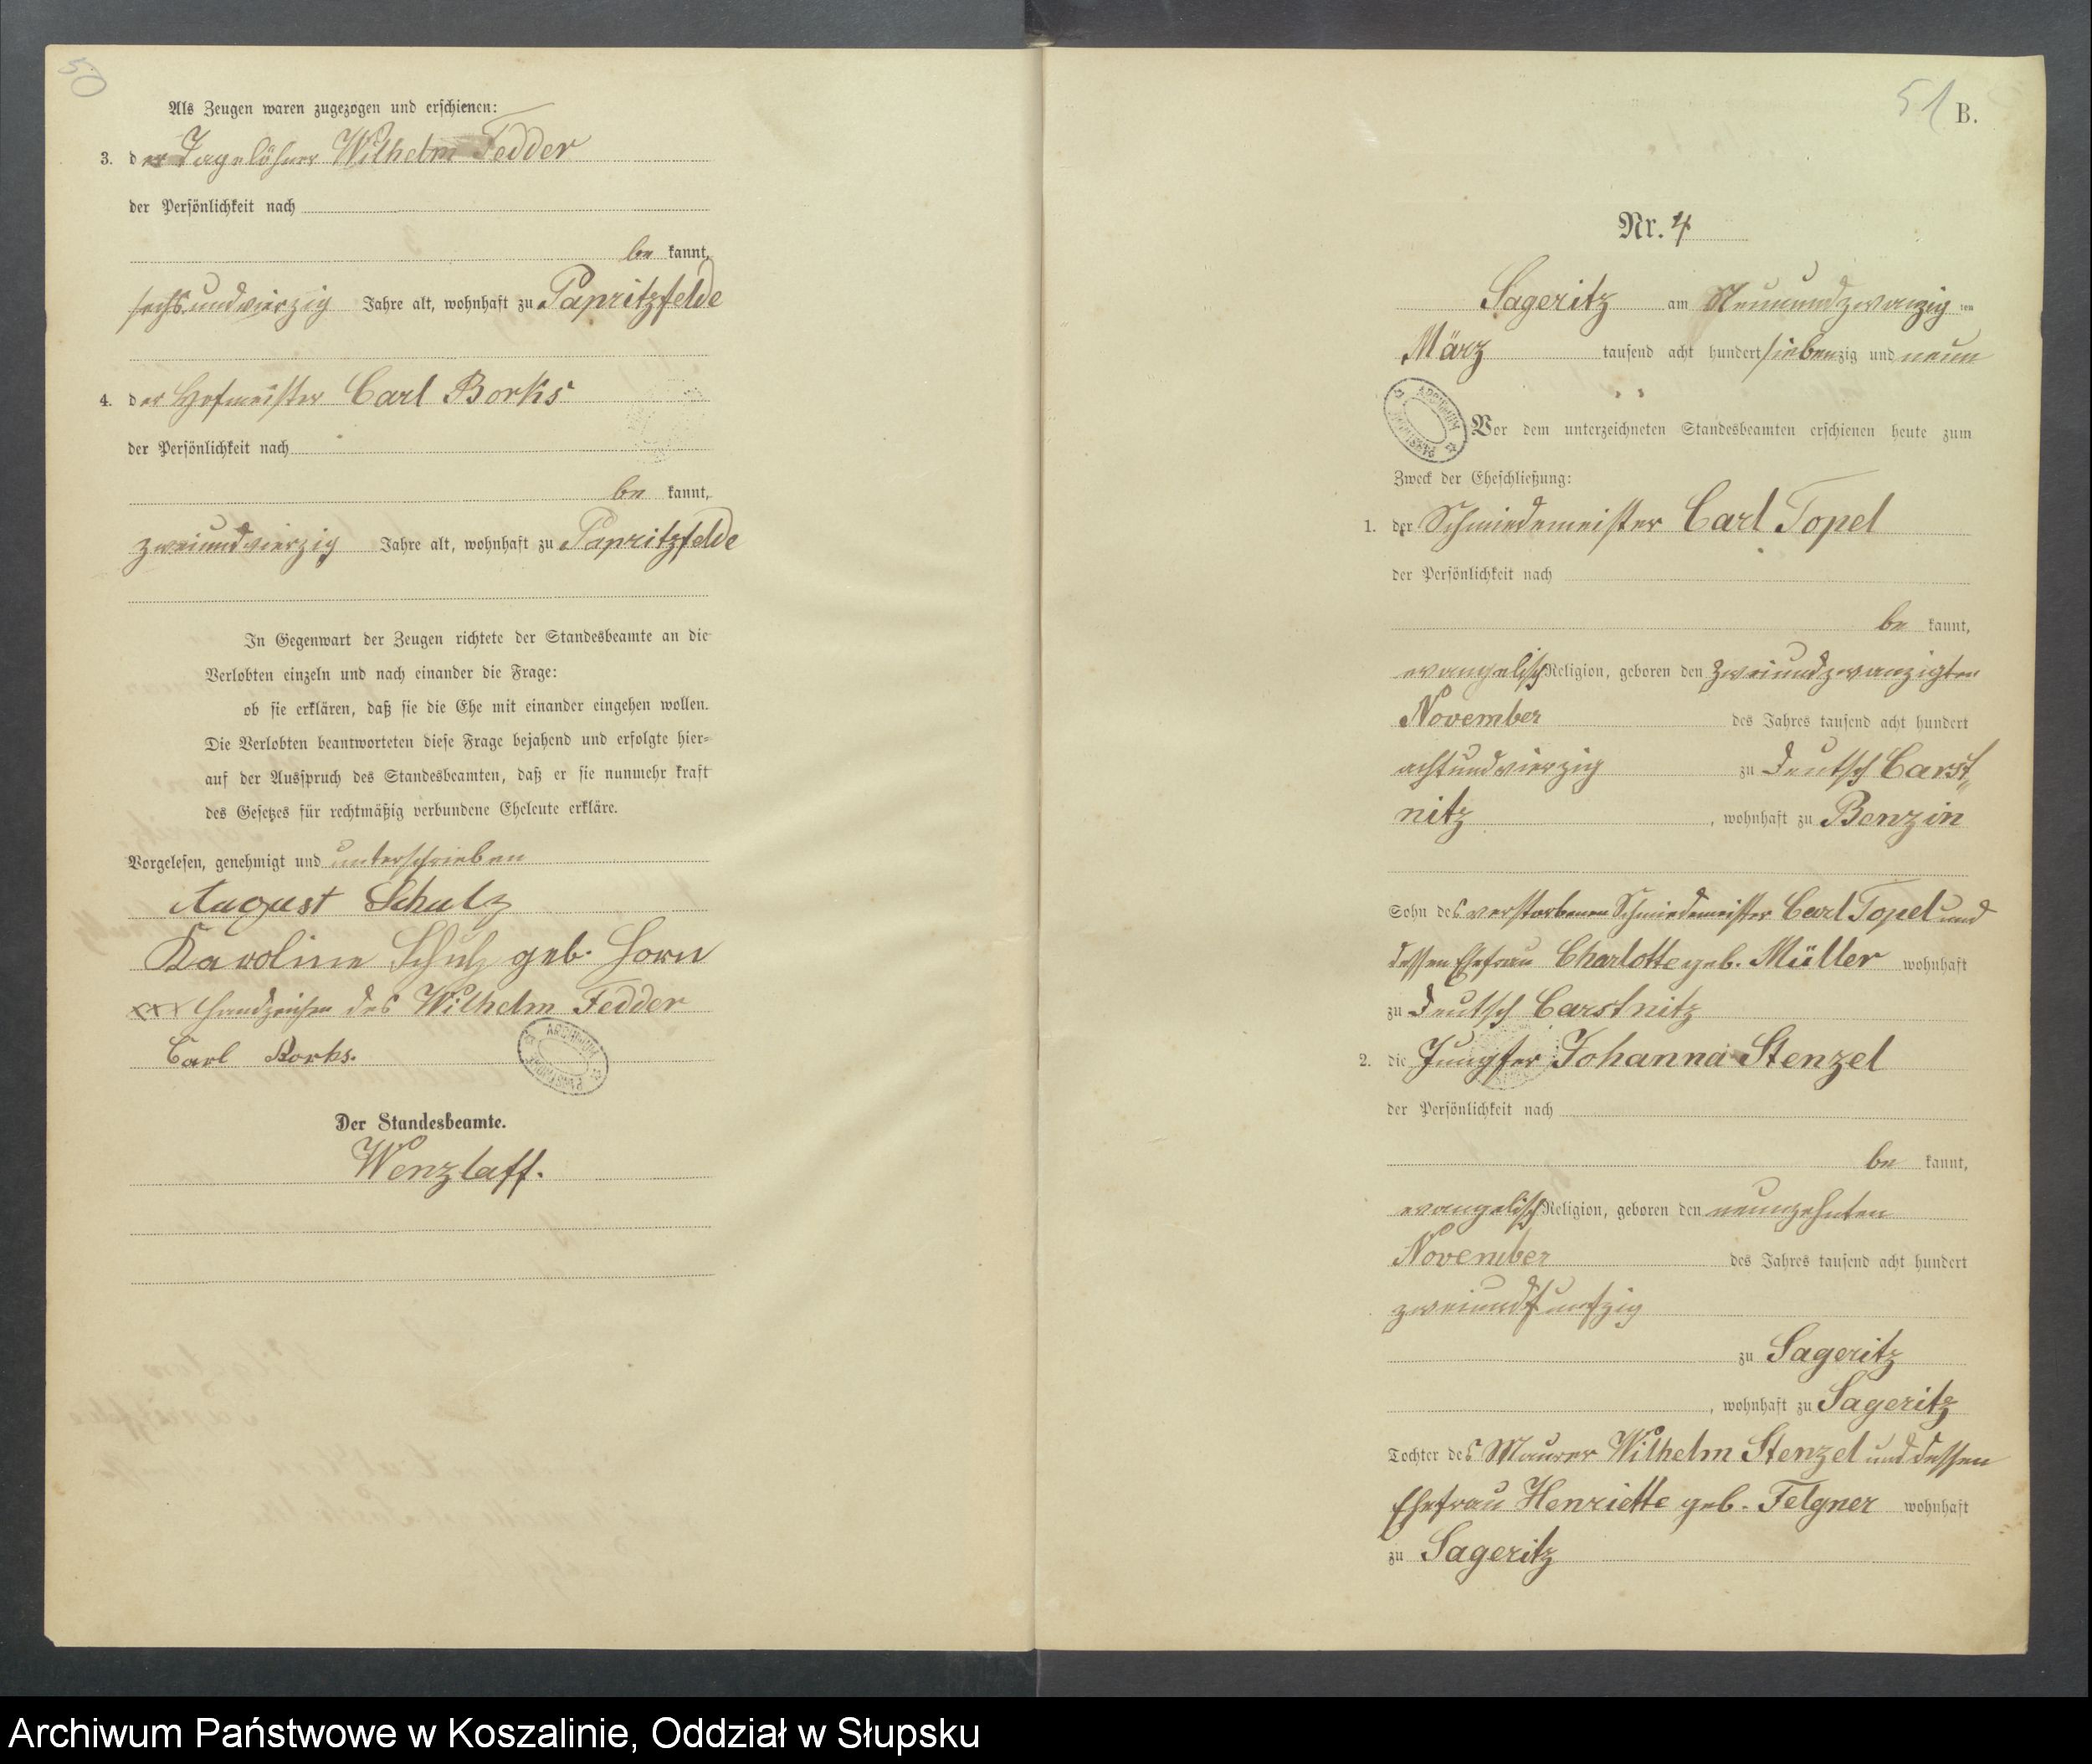 50
Als Zeugen waren zugezogen und erschienen:
3. der Tagelöhner Wilhelm Fedder
der Persönlichkeit nach
be kannt,
sechsundvierzig Jahre alt, wohnhaft zu Papritzfelde
4. der Hofmeister Carl Borks
der Persönlichkeit nach
be kannt,
zweiundvierzig Jahre alt, wohnhaft zu Papritzfelde
In Gegenwart der Zeugen richtete der Standesbeamte an die
Verlobten einzeln und nach einander die Frage:
ob sie erklären, daß sie die Ehe mit einander eingehen wollen.
Die Verlobten beantworteten diese Frage bejahend und erfolgte hier-
auf der Ausspruch des Standesbeamten, daß er sie nunmehr kraft
des Gesetzes für rechtmäßig verbundene Eheleute erkläre.
Vorgelesen, genehmigt und unterschrieben
August Schulz
Karoline Schulz geb. Horn
xxx Handzeichen des Wilhelm Fedder
Carl Borks.
ARCHIWUM PAŃSTWOWE
Der Standesbeamte.
Wenzlaff.
51 B.
Nr. 4
Sageritz am Neunundzwanzig ten
März tausend acht hundert siebenzig und neun
ARCHIWUM PAŃSTWOWE
Vor dem unterzeichneten Standesbeamten erschienen heute zum
Zweck der Eheschließung:
1. der Schmiedemeister Carl Topel
der Persönlichkeit nach
be kannt,
evangelisch Religion, geboren den zweiundzwanzigten
November des Jahres tausend acht hundert
achtundvierzig zu Deutsch Carst„
nitz, wohnhaft zu Benzin
Sohn des verstorbenen Schmiedemeister Carl Topel und
dessen Ehefrau Charlotte geb. Müller wohnhaft
zu Deutsch Carstnitz
2. die Jungfer Johanna Stenzel
der Persönlichkeit nach
be kannt,
evangelisch Religion, geboren den neunzehnten
November des Jahres tausend acht hundert
zweiundfunfzig
zu Sageritz
, wohnhaft zu Sageritz
Tochter des Maurer Wilhelm Stenzel und dessen
Ehefrau Henriette geb. Felgner wohnhaft
zu Sageritz
Archiwum Państwowe w Koszalinie, Oddział w Słupsku